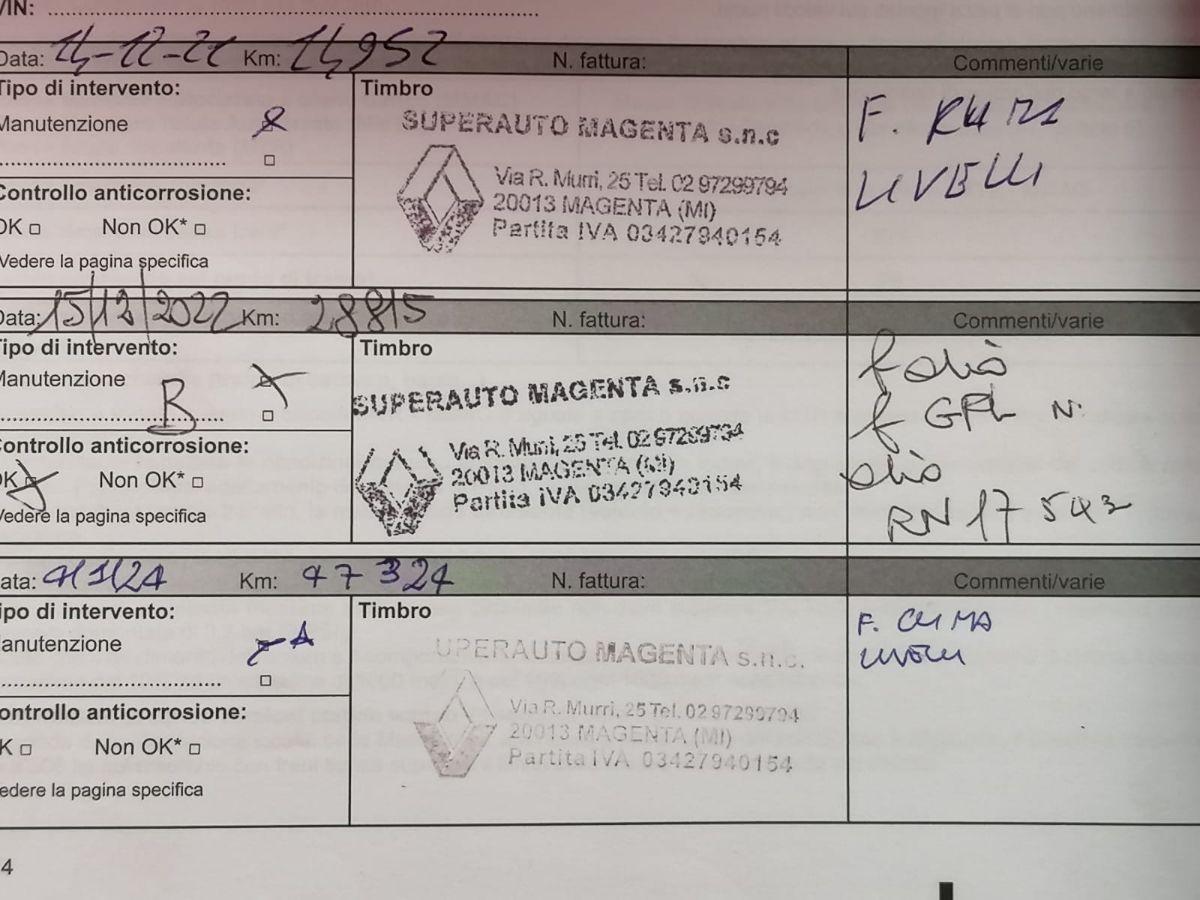 VIN:
Data: 14-12-21 Km: 14952 N. fattura: Commenti/varie
Tipo di intervento: Timbro
Manutenzione
SUPERAUTO MAGENTA s.n.c
F.
LIVELLI
Via R. Murri, 25 Tel. 02 97299794
20013 MAGENTA (MI)
Partita IVA 03427940154
Controllo anticorrosione:
OK Non OK*
Vedere la pagina specifica
Data: 15/12/2022 Km: 28815 N. fattura: Commenti/varie
Tipo di intervento: Timbro
Manutenzione
B
SUPERAUTO MAGENTA s.n.c
Via R. Murri, 25 Tel. 02 97299794
20013 MAGENTA (MI)
Partita IVA 03427940154
f olio
f GPL N.
olio
RN 17 543
Controllo anticorrosione:
OK Non OK*
Vedere la pagina specifica
ata: Km: 47324 N. fattura: Commenti/varie
ipo di intervento: Timbro
anutenzione A
UPERAUTO MAGENTA s.n.c.
Via R. Murri, 25 Tel. 02 97299794
20013 MAGENTA (MI)
Partita IVA 03427940154
F. CLIMA
LIVELLI
ontrollo anticorrosione:
K Non OK*
edere la pagina specifica
4